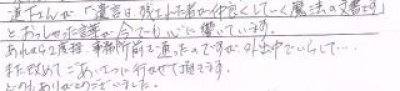 道下さんが「遺言は残された者が仲良くしていく魔法の文書です」
とおっしゃった言葉が今でも心に響いています。
あれから2度程、事務所前を通ったのですが外出中でいらして…
また改めてごあいさつに行かせて頂きます。
どうもありがとうございました。